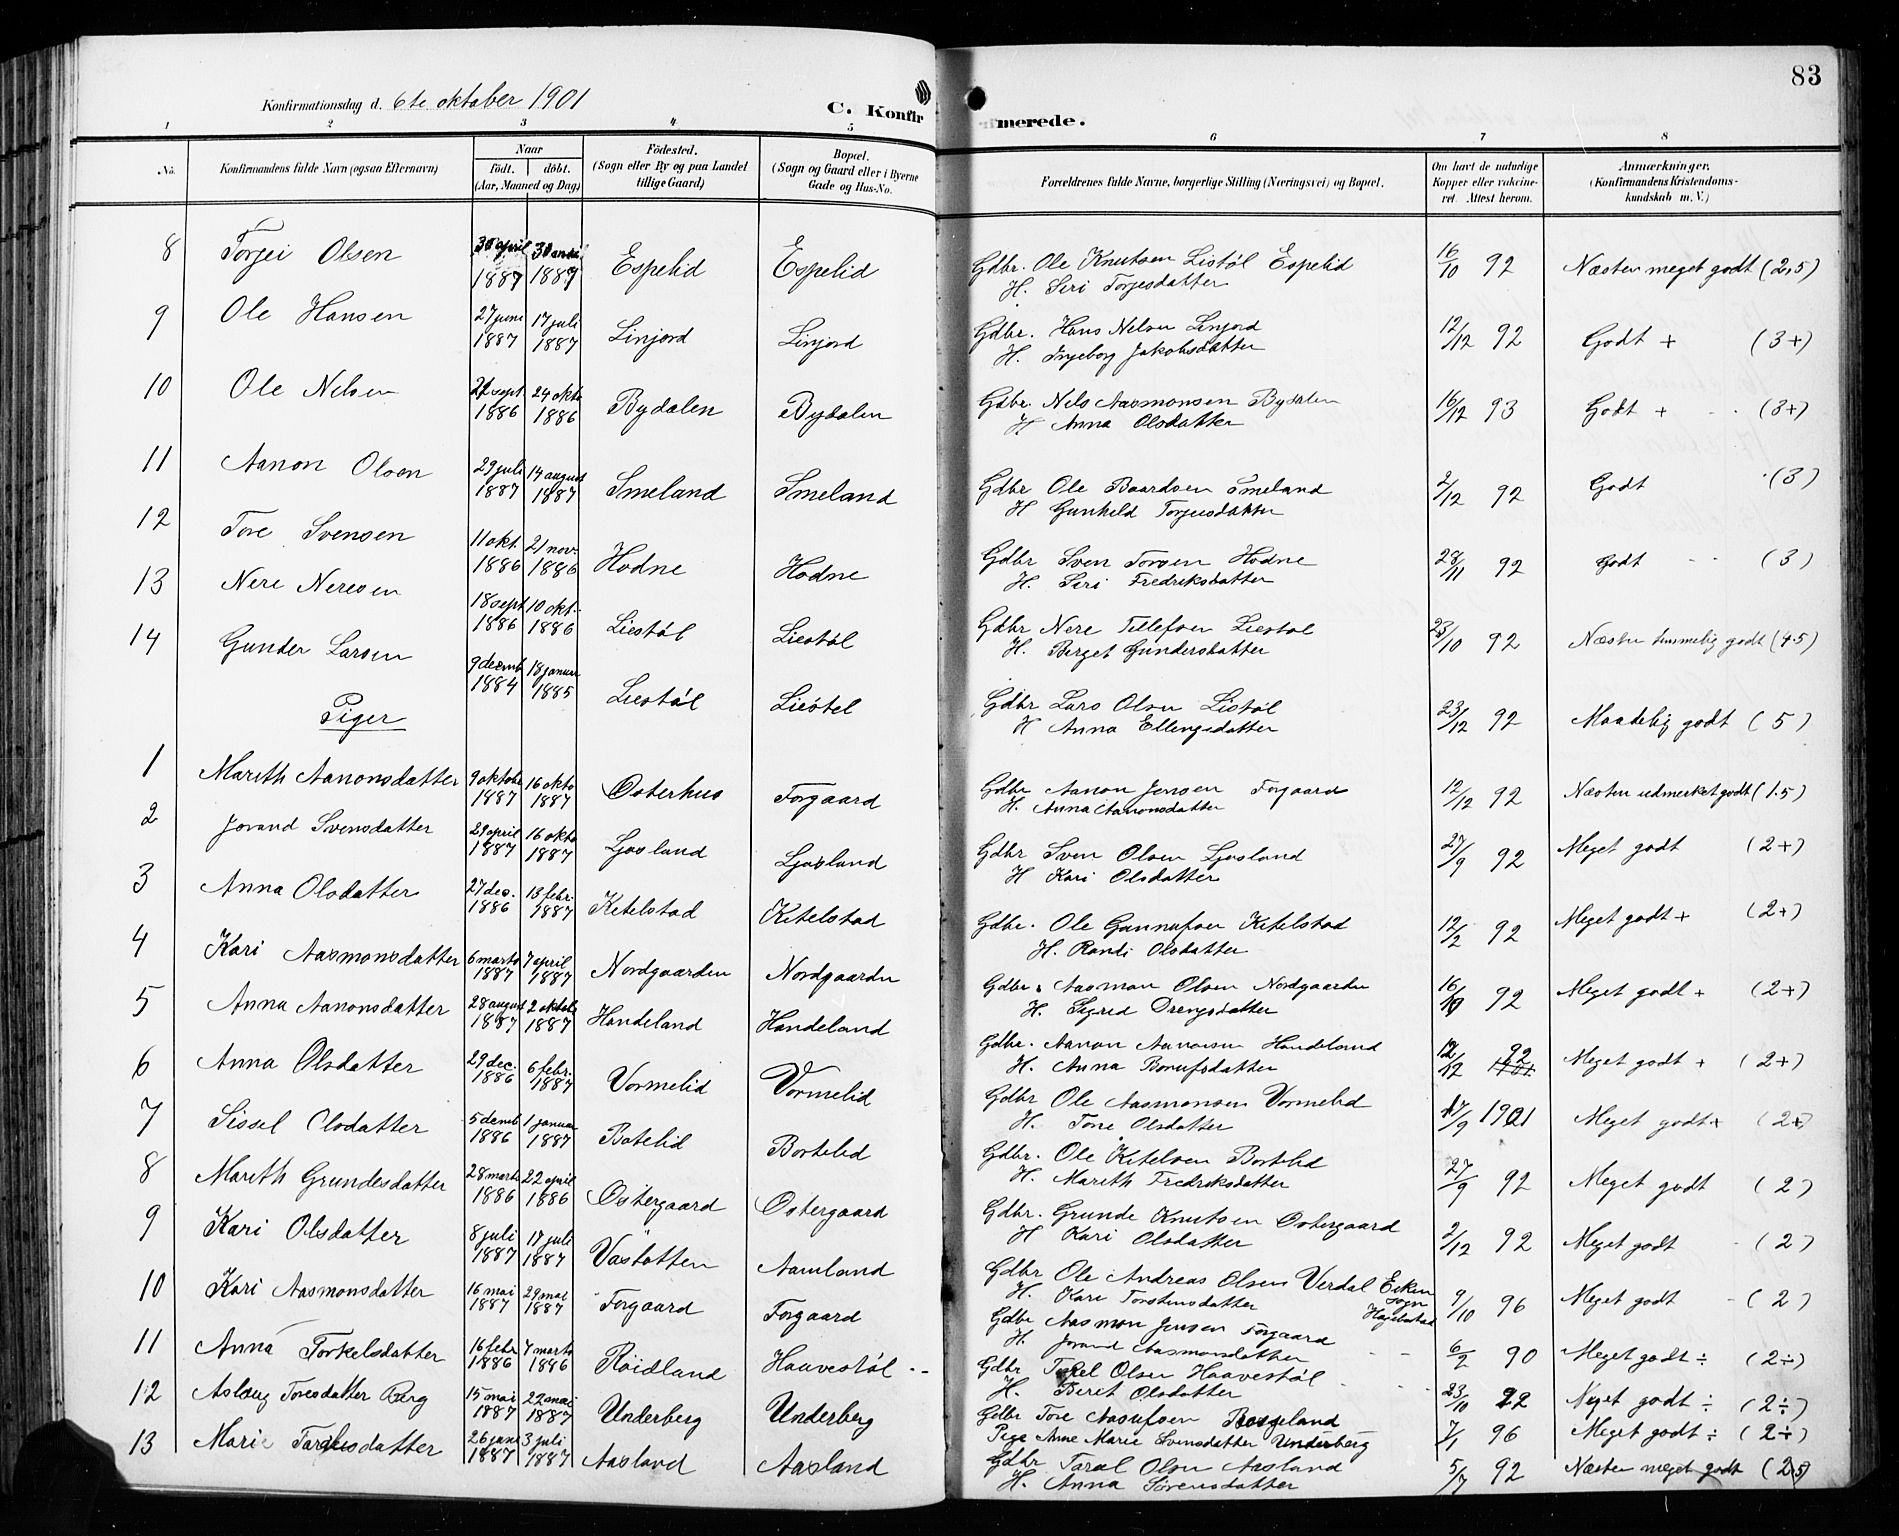 83
Konfirmationsdag d. 6te oktober 1901
C. Konfirmerede.
1 2 3 4 5 6 7 8
No.
Konfirmandens fulde Navn (ogsaa Efternavn)
Naar
födt. döbt.
(Aar, Maaned og Dag)
Födested.
(Sogn eller By og paa Landet
tillige Gaard)
Bopæl.
(Sogn og Gaard eller i Byerne
Gade og Hus-No.
Forældrenes fulde Navne, borgerlige Stilling (Næringsvei) og Bopæl.
Om havt de naturlige
Kopper eller vakcine-
ret. Attest herom.
Anmærkninger.
(Konfirmandens Kristendoms-
kundskab m. V.)
8 Torjei Olsen 30 april 1887 1887 Espelid Espelid Gdbr. Ole Knutsen Listöl Espelid 16/10 92 Næsten meget godt (2,5)
H. Siri Torjesdatter
9 Ole Hansen 27 juni 1887 17 juli 1887 Linjord Linjord Gdbr. Hans Nelsen Linjord 12/12 92 Godt + (3+)
H. Ingeborg Jakobsdatter
10 Ole Nelsen sept 1886 24 oktb 1886 Bydalen Bydalen Gdbr. Nels Aasmonsen Bydalen 16/12 93 Godt + (3+)
H Anna Olsdatter
11 Aanon Olsen 29 juli 1887 14 august 1887 Smeland Smeland Gdbr Ole Baardsen Smeland 2/12 92 Godt (3)
H Gunhild Torjusdatter
12 Tore Svensen 11 okt. 1886 21 nov. 1886 Hodne Hodne Gdbr Sven Torsen Hodne 28/11 92 Godt (3)
H. Siri Fredriksdatter
13 Nere Neresen 18 sept 1886 10 okt. 1886 Liestöl Liestöl Gdbr Nere Tellefsen Liestøl 23/10 92 Næsten temmelig godt (4.5)
H. Berget Gundersdatter
14 Gunder Larsen 9 decemb 1884 18 januar 1885 Liestöl Liestöl Gdbr Lars Olsen Listöl 23/12 92 Maadelig godt (5)
H Anna Ellengsdatter
Piger
1 Marith Aanonsdatter 9 oktobr 1887 16 oktb 1887 Osterhus Forgaard Gdbr Aanon Jensen Forgaard 12/12 92 Næsten udmerket godt (1.5)
H. Anna Aanonsdatter
2 Jorand Svensdatter 29 april 1887 16 oktb 1887 Ljosland Ljosland Gdbr Sven Olsen Ljosland 27/9 92 Meget godt (2+)
H Kari Olsdatter
3 Anna Olsdatter 27 dec. 1886 13 febr. 1887 Ketelstad Ketelstad Gdbr. Ole Gunnufsen Ketelstad 12/2 92 Meget godt + (2+)
H. Randi Olsdatter
4 Kari Aasmonsdatter 6 marts 1887 7 april 1887 Nordgaarden Nordgaarden Gdbr. Aasmon Olsen Nordgaarden 16/10 92 Meget godt + (2+)
H. Sigrid Drengsdatter
5 Anna Aanonsdatter 28 august 1887 2 oktob 1887 Handeland Handeland Gdbr. Aanon Aanonsen Handeland 12/12 92 Meget godt + (2+)
H. Anna Bonufsdatter
6 Anna Olsdatter 29 dec. 1886 6 febr. 1887 Vormelid Vormelid Gdbr Ole Aasmonsen Vormelid 17/9 1901 Meget godt + (2+)
H. Tone Olsdatter
7 Sissel Olsdatter 5 decmb 1886 1 januar 1887 Botelid Bortelid Gdbr. Ole Ketelsen Bortelid 27/9 92 Meget godt (2)
H. Marith Fredriksdatter
8 Marith Grundesdatter 28 marts 1886 22 april 1886 Ostergaard Ostergaard Gdbr. Grunde Knutsen Ostergaard 2/12 92 Meget godt (2)
H Kari Olsdatter
9 Kari Olsdatter 8 juli 1887 17 juli 1887 Vastöttén Aamland Gdbr Ole Andreas Olsen Verdal Eiken Sogn Hægebostad 9/10 96 Meget godt (2)
H. Kari Torstensdatter
10 Kari Aasmonsdatter 16 mai 1887 29 mai 1887 Forgaard Forgaard Gdbr Aasmon Jensen Forgaard 6/2 90 Meget godt ÷ (2÷)
H. Jorand Aasmonsdatter
11 Anna Torkelsdatter 16 febr 1886 7 marts 1886 Röidland Haavestöl Gdbr Torkel Olsen Haavestöl 23/10 92 Meget godt ÷ (2÷)
H. Beret Olsdatter
12 Aslaug Toresdatter Berg 15 mai 1887 22 mai 1887 Underberg Underberg Gdbr Tore Aasufsen Borgeland 7/1 96 Meget godt ÷ (2÷)
Pige Anne Marie Svensdatter Underberg
13 Marie Taralsdatter 26 1887 3 juli 1887 Aasland Aasland Gdbr Taral Olsen Aasland 5/7 92 Næsten meget godt (2,5)
H. Anna Sörensdatter